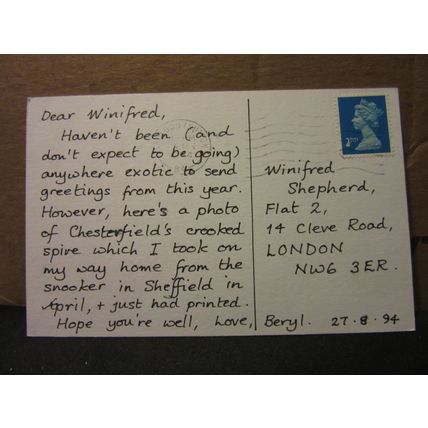 Dear Winifred,
Haven't been (and
don't expect to be going)
anywhere exotic to send
greetings from this year.
However, here's a photo
of Chesterfield's crooked
spire which I took on
my way home from the
snooker in Sheffield in
April, + just had printed.
Hope you're well, Love, Beryl. 27.8.94
2nd
Winifred
Shepherd,
Flat 2,
14 Cleve Road,
LONDON
NW6 3ER.